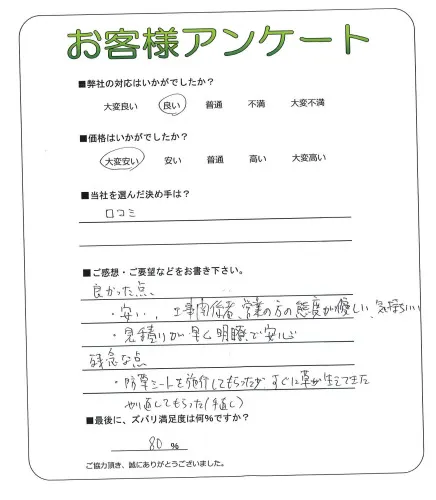 お客様アンケート
■弊社の対応はいかがでしたか？
大変良い 良い 普通 不満 大変不満
■価格はいかがでしたか？
大変安い 安い 普通 高い 大変高い
■当社を選んだ決め手は？
口コミ
■ご感想・ご要望などをお書き下さい。
良かった点、
・安い、工事関係者、営業の方の態度が優しい、気持ちいい
・見積りが早く明瞭で安心
残念な点
・防草シートを施行してもらったが、すぐに草が生えてきた
やり直してもらった(手直し)
■最後に、ズバリ満足度は何%ですか？
80 %
ご協力頂き、誠にありがとうございました。